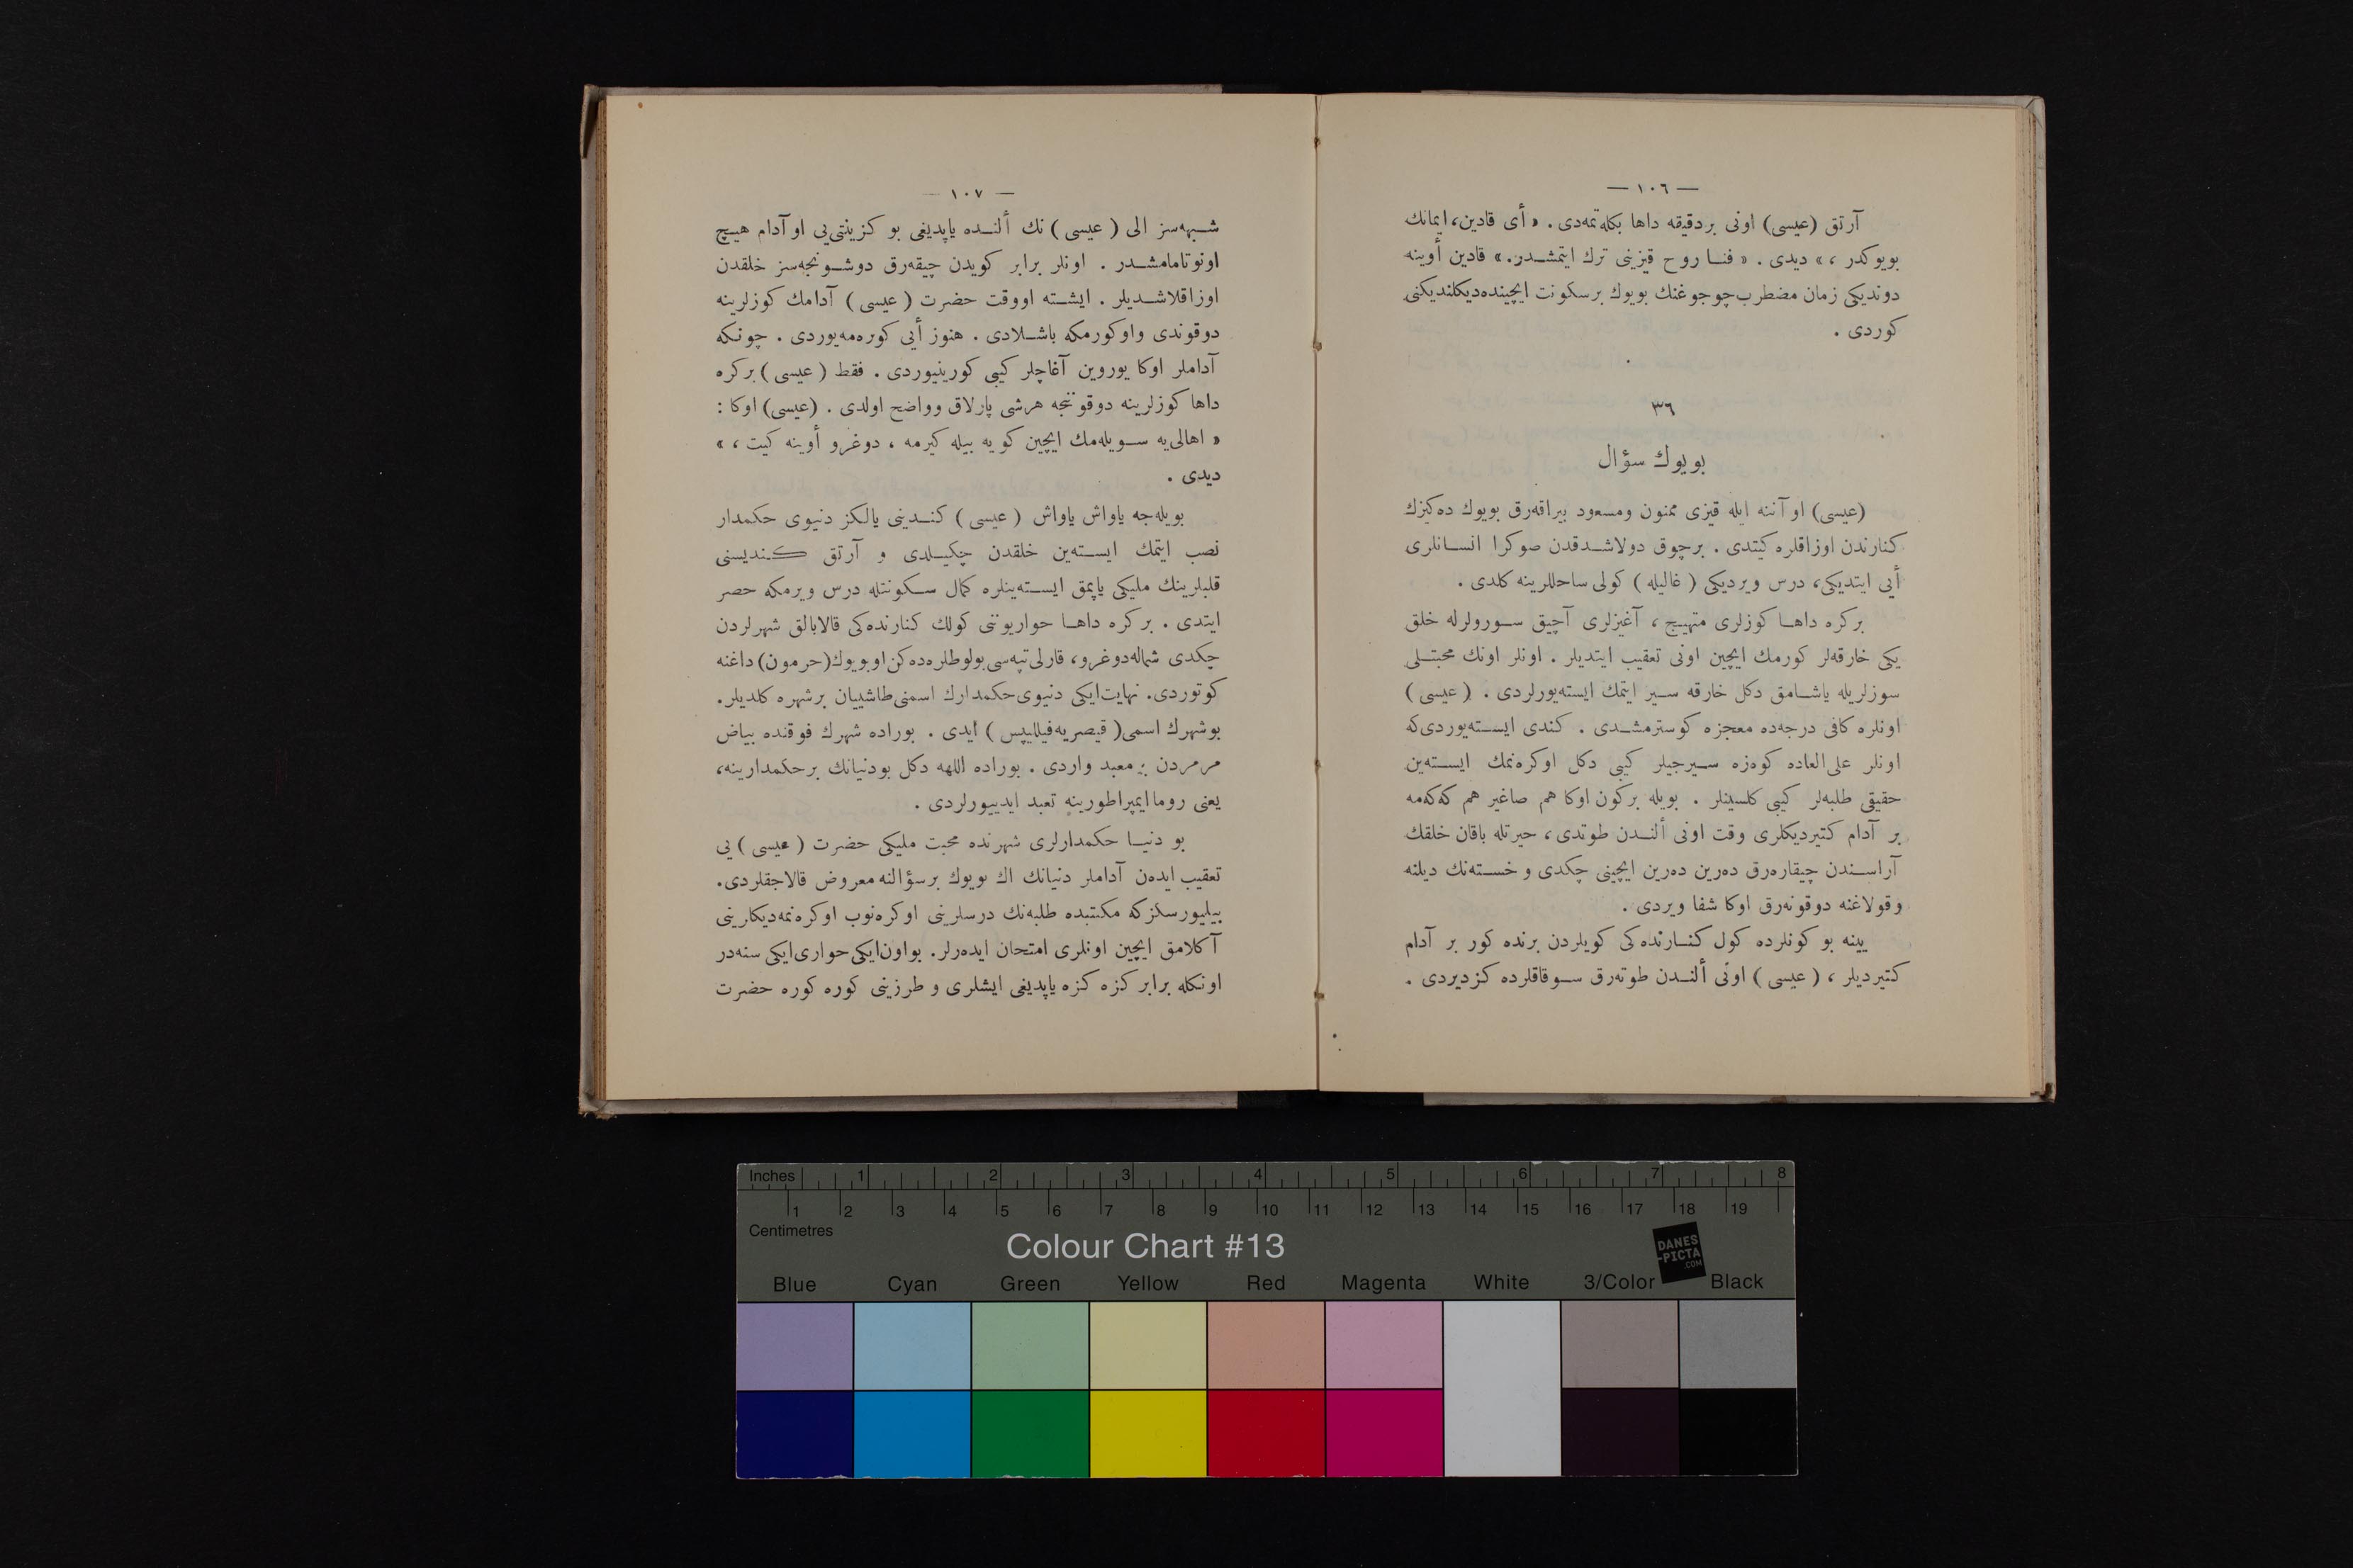 — ١٠٦ —
آرتق (عيسى) اونى بردقيقه داها بكله‌تمه‌دى . « أى قادين، ايمانك
بويوكدر ، » ديدى . « فنا روح قيزينى ترك ايتمشدر. » قادين أوينه
دونديكى زمان مضطرب چوجوغنك بويوك برسكونت ايچينده ديكلنديكنى
كوردى .
٣٦
بويوك سؤال
(عيسى) او آننه ايله قيزى ممنون ومسعود بيراقه‌رق بويوك ده‌كيزك
كنارندن اوزاقلره كيتدى . برچوق دولاشدقدن صوكرا انسانلرى
أيى ايتديكى، درس ويرديكى ( غاليله ) كولى ساحللرينه كلدى .
بركره داها كوزلرى متهيج ، آغيزلرى آچيق سورولرله خلق
يكى خارقه‌لر كورمك ايچين اونى تعقيب ايتديلر . اونلر اونك محبتلى
سوزلريله ياشامق دكل خارقه سير ايتمك ايسته‌يورلردى . ( عيسى )
اونلره كافى درجه‌ده معجزه كوسترمشدى . كندى ايسته‌يوردى‌كه
اونلر على‌العاده كوه‌زه سيرجيلر كيبى دكل اوكره‌نمك ايسته‌ين
حقيقى طلبه‌لر كيبى كلسينلر . بويله بركون اوكا هم صاغير هم كه‌كه‌مه
بر آدام كتيرديكلرى وقت اونى ألندن طوتدى ، حيرتله باقان خلقك
آراسندن چيقاره‌رق ده‌رين ده‌رين ايچينى چكدى و خسته‌نك ديلنه
وقولاغنه دوقونه‌رق اوكا شفا ويردى .
يينه بو كونلرده كول كنارنده‌كى كويلردن برنده كور بر آدام
كتيرديلر ، ( عيسى ) اونى ألندن طوته‌رق سوقاقلرده كزديردى .
— ١٠٧ —
شبهه‌سز الى ( عيسى ) نك ألنده ياپديغى بو كزينتى‌يى او آدام هيچ
اونوتامامشدر . اونلر برابر كويدن چيقه‌رق دوشونجه‌سز خلقدن
اوزاقلاشديلر . ايشته اووقت حضرت ( عيسى ) آدامك كوزلرينه
دوقوندى واوكورمكه باشلادى . هنوز أيى كوره‌مه‌يوردى . چونكه
آداملر اوكا يورويـن آغاچلر كيبى كورينيوردى . فقط ( عيسى ) بركره
داها كوزلرينه دوقوننجه هرشى پارلاق وواضح اولدى . (عيسى) اوكا :
« اهالى‌يه سويله‌مك ايچين كويه بيله كيرمه ، دوغرو أوينه كيت ، »
ديدى .
بويله‌جه ياواش ياواش ( عيسى ) كندينى يالكز دنيوى حكمدار
نصب ايتمك ايسته‌ين خلقدن چكيلدى و آرتق كنديسنى
قلبلرينك مليكى ياپمق ايسته‌ينلره كمال سكونتله درس ويرمكه حصر
ايتدى . بركره داها حواريوننى كولك كنارنده‌كى قالابالق شهرلردن
چكدى شماله دوغرو، قارلى تپه‌سى بولوطلره ده‌كن او بويوك (حرمون) داغنه
كوتوردى. نهايت ايكى دنيوى حكمدارك اسمنى طاشييان برشهره كلديلر.
بوشهرك اسمى ( قيصريه فيليپس ) ايدى . بوراده شهرك فوقنده بياض
مرمردن بر معبد واردى . بوراده اللهه دكل بودنيانك برحكمدارينه،
يعنى روما ايمپراطورينه تعبد ايدييورلردى .
بو دنيا حكمدارلرى شهرنده محبت مليكى حضرت ( عيسى ) يى
تعقيب ايده‌ن آداملر دنيانك اك بويوك برسؤالنه معروض قالاجقلردى.
بيليورسكزكه مكتبده طلبه‌نك درسلرينى اوكره‌نوب اوكره‌نمه‌ديكلرينى
آكلامق ايچين اونلرى امتحان ايده‌رلر. بواون‌ايكى حوارى‌ايكى سنه‌در
اونكله برابر كزه كزه ياپديغى ايشلرى و طرزينى كوره كوره حضرت
Inches 1 2 3 4 5 6 7 8
1 2 3 4 5 6 7 8 9 10 11 12 13 14 15 16 17 18 19
Centimetres
Colour Chart #13
DANES
-PICTA
.COM
Blue Cyan Green Yellow Red Magenta White 3/Color Black